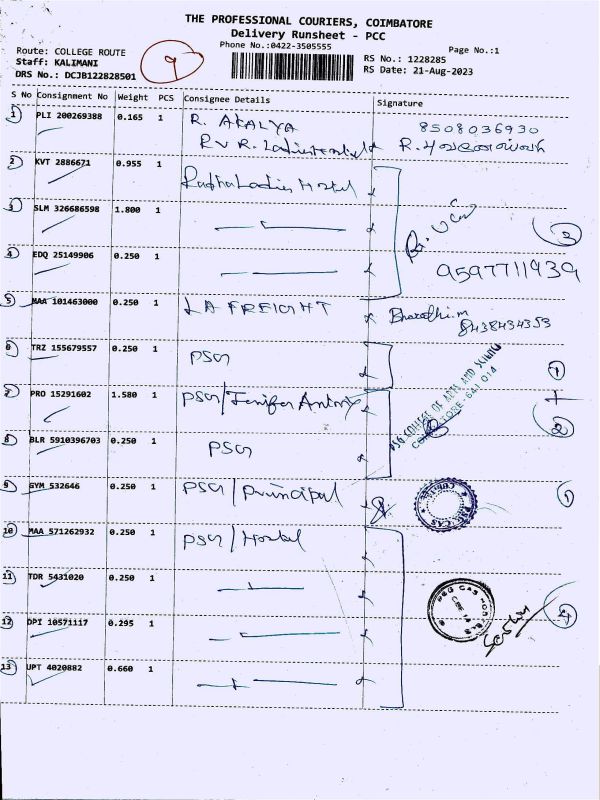 THE PROFESSIONAL COURIERS, COIMBATORE
Delivery Runsheet - PCC
Phone No.:0422-3505555
Page No.:1
Route: COLLEGE ROUTE
Staff: KALIMANI
DRS No.: DCJB122828501
9
RS No.: 1228285
RS Date: 21-Aug-2023
S No Consignment No Weight PCS Consignee Details Signature
1 PLI 200269388 0.165 1 R. AKALYA 8508036930
R V R. Ladies Hostel R.
2 KVT 2886671 0.955 1 Radha Ladies Hostel
3 SLM 326686598 1.800 1 3
4 EDQ 25149906 0.250 1 9597711939
5 MAA 101463000 0.250 1 LA FREIGHT Bharathi.m
8438434353
6 TRZ 155679557 0.250 1 PSG 1
+
7 PRO 15291602 1.580 1 PSG/Jenifer Antony 2
PSG COLLEGE OF ARTS AND SCIENCE
COIMBATORE-641 014
8 BLR 5910396703 0.250 1 PSG
9 GYM 532646 0.250 1 PSG/Principal 1
PSG CAS
10 MAA 571262932 0.250 1 PSG/Hostel
11 TDR 5431020 0.250 1
PSG CAS HOSTELS
CBE 14
12 DPI 10571117 0.295 1 4
13 UPT 4020882 0.660 1